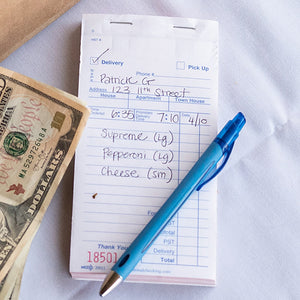 Delivery
Pick Up
Phone #
Patrick G
Address 123 11th Street
House Apartment Town House
6:35 7:10 4/10
Supreme (Lg)
Pepperoni (Lg)
Cheese (sm)
Total
PST
Delivery
Total
Thank You
18501
DOLLARS